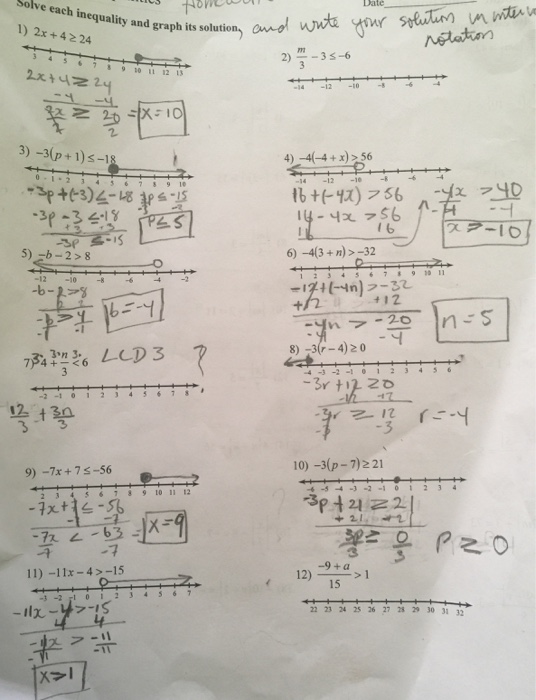 Homework
Date
Solve each inequality and graph its solution, and write your solution in interval
notation
1) 2x + 4 ≥ 24
3 4 5 6 7 8 9 10 11 12 13
2x+4 ≥ 24
-4 -4
2x ≥ 20 = x = 10
2 2
2) m/3 - 3 ≤ -6
-14 -12 -10 -8 -6 -4
3) -3(p + 1) ≤ -18
0 1 2 3 4 5 6 7 8 9 10
-3p + (-3) ≤ -18
-3p - 3 ≤ -18
+3 +3
-3p ≤ -15
-3p ≤ -15
P ≤ 5
4) -4(-4 + x) > 56
-14 -12 -10 -8 -6 -4
16+(-4x) > 56
16 - 4x > 56
16 16
-4x > 40
-4 -4
x > -10
5) -b - 2 > 8
-12 -10 -8 -6 -4 -2
-b - 2 > 8
-b > 4
-1 -1
b = -4
6) -4(3 + n) > -32
1 2 3 4 5 6 7 8 9 10 11
-12+(-4n) > -32
+12 +12
-4n > -20
-4
n = 5
7) 4 + n/3 < 6
3· 3· 3·
LCD 3 ?
-2 -1 0 1 2 3 4 5 6 7 8
12/3 + 3n/3
8) -3(r - 4) ≥ 0
-4 -3 -2 -1 0 1 2 3 4 5 6
-3r + 12 ≥ 0
-12 -12
-3r ≥ 12
-3 -3
r = -4
9) -7x + 7 ≤ -56
2 3 4 5 6 7 8 9 10 11 12
-7x+7 ≤ -56
-7 -7
-7x < -63 =
-7 -7
x = 9
10) -3(p - 7) ≥ 21
-6 -5 -4 -3 -2 -1 0 1 2 3 4
-3p + 21 ≥ 21
+21 +21
3p ≥ 0
3 3
P ≥ 0
11) -11x - 4 > -15
-3 -2 -1 0 1 2 3 4 5 6 7
-11x - 4 > -15
4 4
-11x > -11
-11 -11
x > 1
12) (-9 + a)/15 > 1
22 23 24 25 26 27 28 29 30 31 32